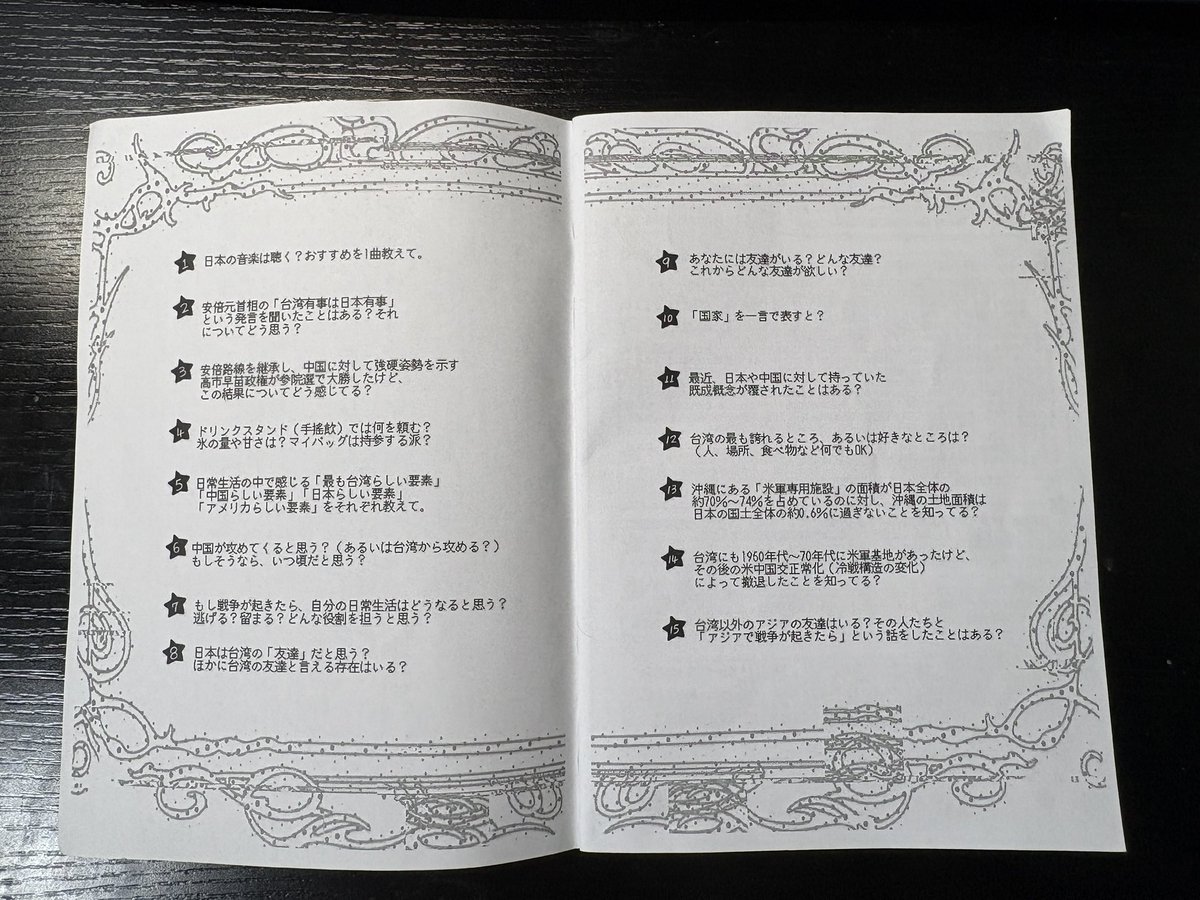 1 日本の音楽は聴く？おすすめを1曲教えて。
2 安倍元首相の「台湾有事は日本有事」
という発言を聞いたことはある？それ
についてどう思う？
3 安倍路線を継承し、中国に対して強硬姿勢を示す
高市早苗政権が参院選で大勝したけど、
この結果についてどう感じてる？
4 ドリンクスタンド（手搖飲）では何を頼む？
氷の量や甘さは？マイバッグは持参する派？
5 日常生活の中で感じる「最も台湾らしい要素」
「中国らしい要素」「日本らしい要素」
「アメリカらしい要素」をそれぞれ教えて。
6 中国が攻めてくると思う？（あるいは台湾から攻める？）
もしそうなら、いつ頃だと思う？
7 もし戦争が起きたら、自分の日常生活はどうなると思う？
逃げる？留まる？どんな役割を担うと思う？
8 日本は台湾の「友達」だと思う？
ほかに台湾の友達と言える存在はいる？
9 あなたには友達がいる？どんな友達？
これからどんな友達が欲しい？
10 「国家」を一言で表すと？
11 最近、日本や中国に対して持っていた
既成概念が覆されたことはある？
12 台湾の最も誇れるところ、あるいは好きなところは？
（人、場所、食べ物など何でもOK）
13 沖縄にある「米軍専用施設」の面積が日本全体の
約70%～74%を占めているのに対し、沖縄の土地面積は
日本の国土全体の約0.6%に過ぎないことを知ってる？
14 台湾にも1960年代～70年代に米軍基地があったけど、
その後の米中国交正常化（冷戦構造の変化）
によって撤退したことを知ってる？
15 台湾以外のアジアの友達はいる？その人たちと
「アジアで戦争が起きたら」という話をしたことはある？